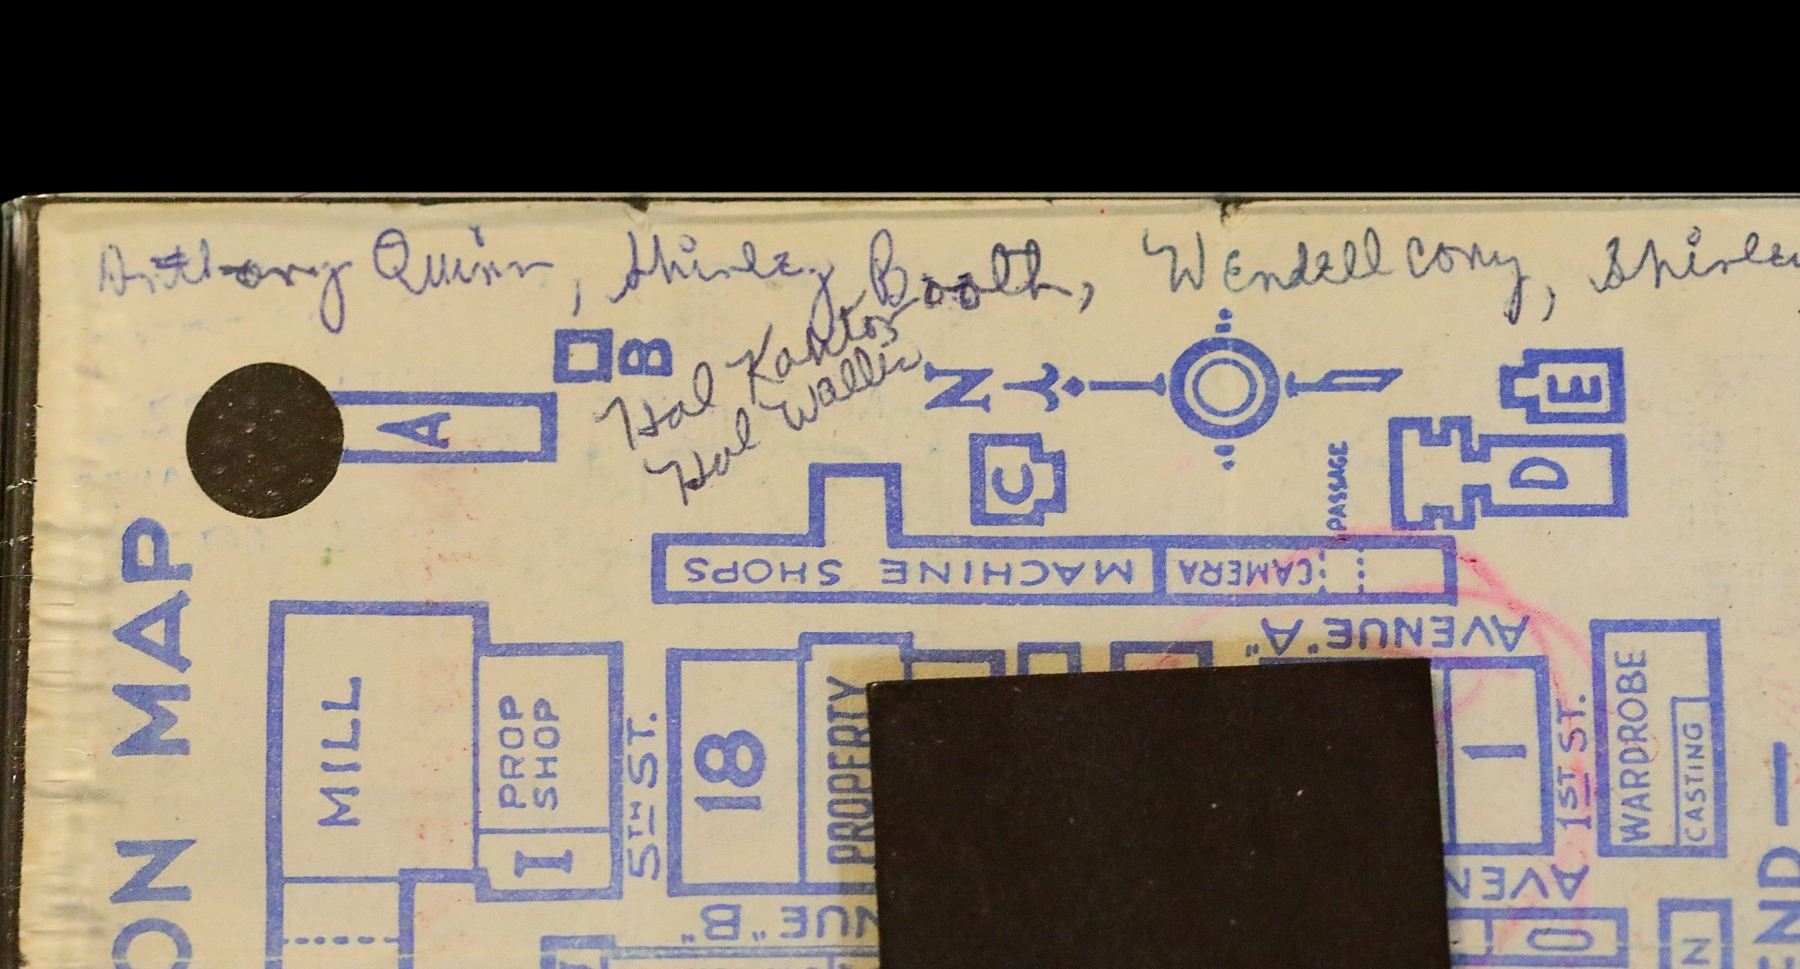 Anthony Quinn, Shirley Booth, Wendell Cory, Shirley
Hal Kantor
Hal Wallis
A
B
N
C
E
D
PASSAGE
MACHINE SHOPS
CAMERA
AVENUE "A"
ON MAP
MILL
PROP
SHOP
I
5TH ST.
18
PROPERTY
1
1ST ST.
WARDROBE
CASTING
AVEN
NUE "B"
0
N
END —